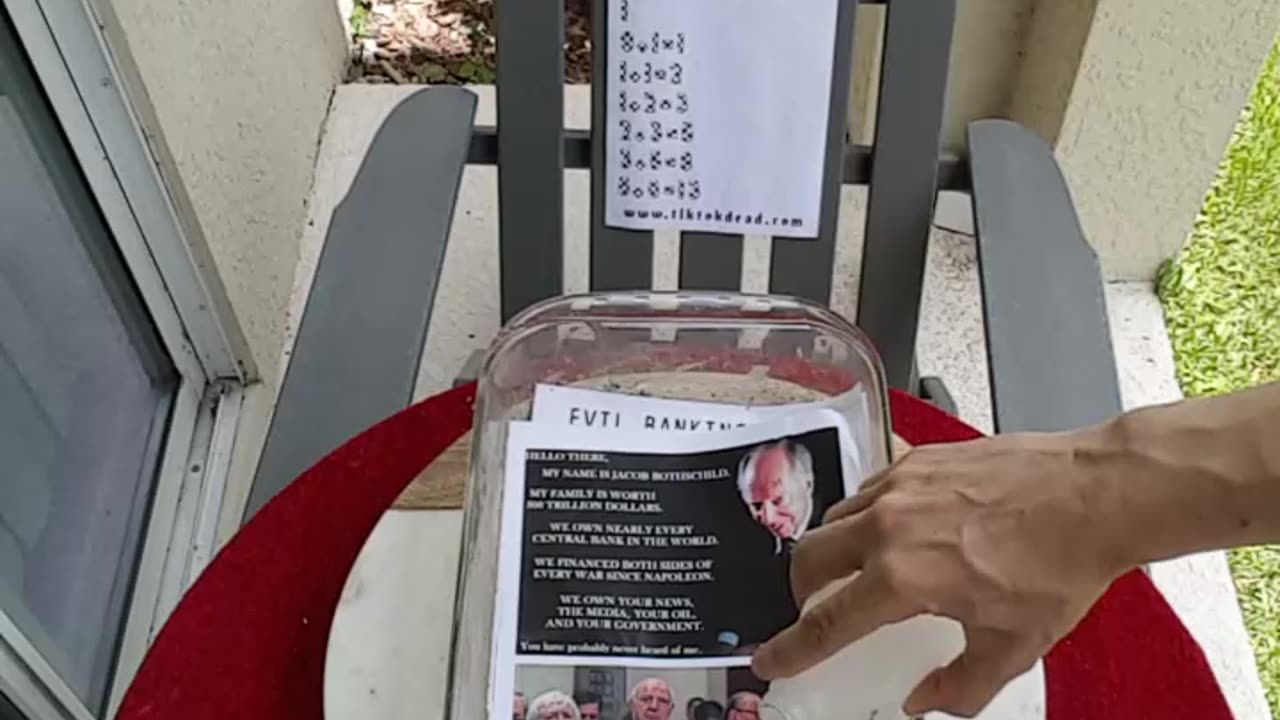 www.tiktokdead.com
EVIL BANKING
HELLO THERE,
MY NAME IS JACOB ROTHSCHILD.
MY FAMILY IS WORTH
500 TRILLION DOLLARS.
WE OWN NEARLY EVERY
CENTRAL BANK IN THE WORLD.
WE FINANCED BOTH SIDES OF
EVERY WAR SINCE NAPOLEON.
WE OWN YOUR NEWS,
THE MEDIA, YOUR OIL,
AND YOUR GOVERNMENT.
You have probably never heard of me.